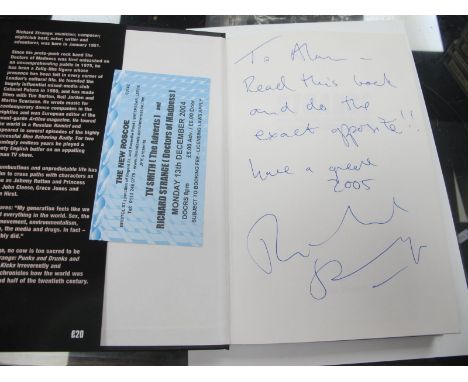 Richard Strange: musician; composer;
nightclub host; actor; writer and
adventurer, was born in January 1951.
Since his proto-punk rock band The
Doctors of Madness was first unleashed on
an uncomprehending public in 1975, he
has been a Zelig-like figure whose
presence has been felt in every corner of
London's cultural life. He founded the
hugely influential mixed-media club
Cabaret Futura in 1980, and has made
films with Tim Burton, Neil Jordan and
Martin Scorsese. He wrote music for
contemporary dance companies in the
eighties and was European editor of the
avant-garde Artline magazine. He toured
world in a Russian Hamlet and
appeared in several episodes of the highly
successful Men Behaving Badly. For two
seemingly endless years he played a
English butler on an appalling
man TV show.
combustious and unpredictable life has
him to cross paths with characters as
as Johnny Rotten and Princess
John Cleese, Grace Jones and
West.
"My generation feels like we
everything in the world. Sex, the
movement, environmentalism,
the media and drugs. In fact –
did."
no cow is too sacred to be
Strange: Punks and Drunks and
Kicks irreverently and
chronicles how the world was
half of the twentieth century.
£20
THE NEW ROSCOE
TV SMITH [The Adverts] and
RICHARD STRANGE [Doctors of Madness]
MONDAY 13th DECEMBER 2004
DOORS 8pm
£5.00 Adv. / £6.00 Door
SUBJECT TO BOOKING FEE - LICENSING LAWS APPLY
To Alan –
Read this book
and do the
exact opposite!!
Have a great
2005